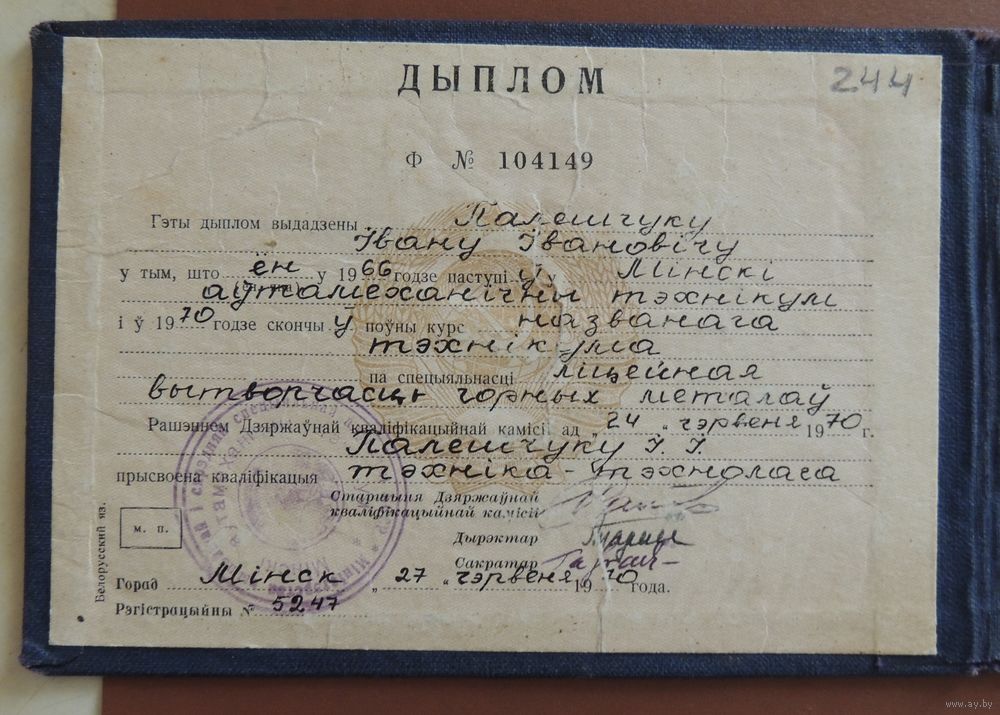 ДЫПЛОМ
244
Ф № 104149
Гэты дыплом выдадзены Палешчуку
Івану Івановічу
у тым, што ён у 1966 годзе паступіў у Мінскі
аўтамеханічны тэхнікум
і ў 1970 годзе скончыў поўны курс названага
тэхнікума
па спецыяльнасці ліцейная
вытворчасць чорных металаў
Рашэннем Дзяржаўнай кваліфікацыйнай камісіі ад „24„ чэрвеня 1970 г.
Палешчуку І. І.
прысвоена кваліфікацыя тэхніка-тэхнолага
Старшыня Дзяржаўнай
кваліфікацыйнай камісіі
Дырэктар
Сакратар
м. п.
Горад Мінск „27„ чэрвеня 1970 года.
Рэгістрацыйны № 5247
Белорусский яз.
www.ay.by